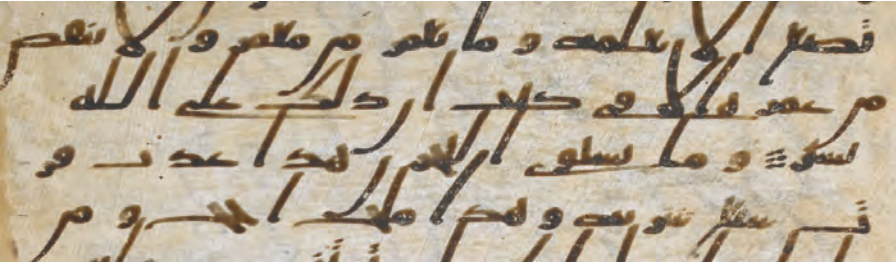 تضع الا بعلمه و ما يعمر من معمر و لا ينقص
من عمره الا في كتب ان ذلك على الله
يسير و ما يستوي البحرن هذا عذب فر
ت سيغ شربه و هذا ملح اجاج و من